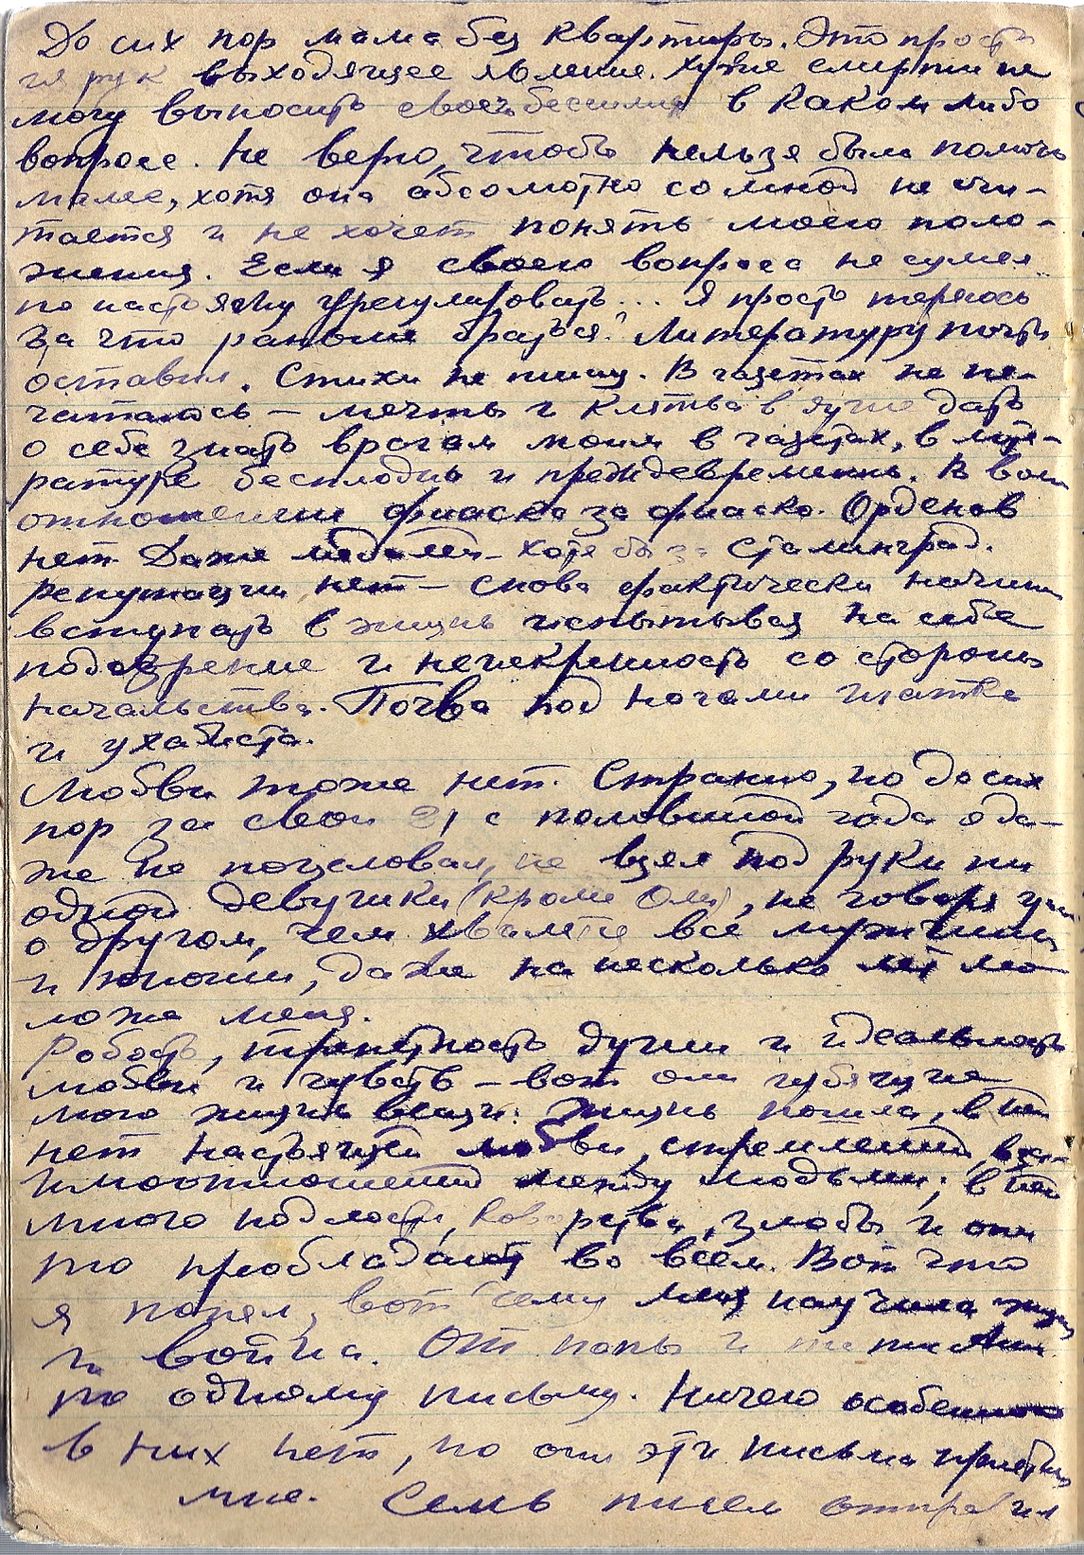 До сих пор мама без квартиры. Это просто
из рук выходящее явление. Хуже смерти не
могу выносить своё бессилие в каком либо
вопросе. Не верю, чтобы нельзя было помочь
маме, хотя она абсолютно со мной не счи-
тается и не хочет понять моего поло-
жения. Если я своего вопроса не сумел
по настоящему урегулировать... Я просто теряюсь
за что раньше браться? Литературу почти
оставил. Стихи не пишу. В газетах не пе-
чатаюсь – мечты и клятва в душе дать
о себе знать врагам моим в газетах, в лите-
ратуре бесплодны и преждевременны. В воен
отношении фиаско за фиаско. Орденов
нет. Даже медалей – хотя бы за Сталинград.
Репутации нет – снова фактически начинаю
вступать в жизнь испытывая на себе
подозрение и неискренность со стороны
начальства. Почва под ногами шатка
и ухабиста.
Любви тоже нет. Странно, но до сих
пор за свои 21 с половиной года я да-
же не поцеловал, не взял под руки ни
одной девушки (кроме Оли), не говоря уж
о другом, чем хвалятся все мужчины
и юноши, даже на несколько лет мо-
ложе меня.
Робость, трепетность души и идеальность
любви и чувств – вот они губящие
мою жизнь вещи. Жизнь пошла, в ней
нет настоящей любви, стремлений, вза-
имоотношений между людьми; в ней
много подлости, коварства, злобы и они
то преобладают во всем. Вот что
я понял, вот чему меня научила жизнь
и война. От папы и мамы
по одному письму. Ничего особенного
в них нет, но они эти письма приятны
мне. Семь писем отправил